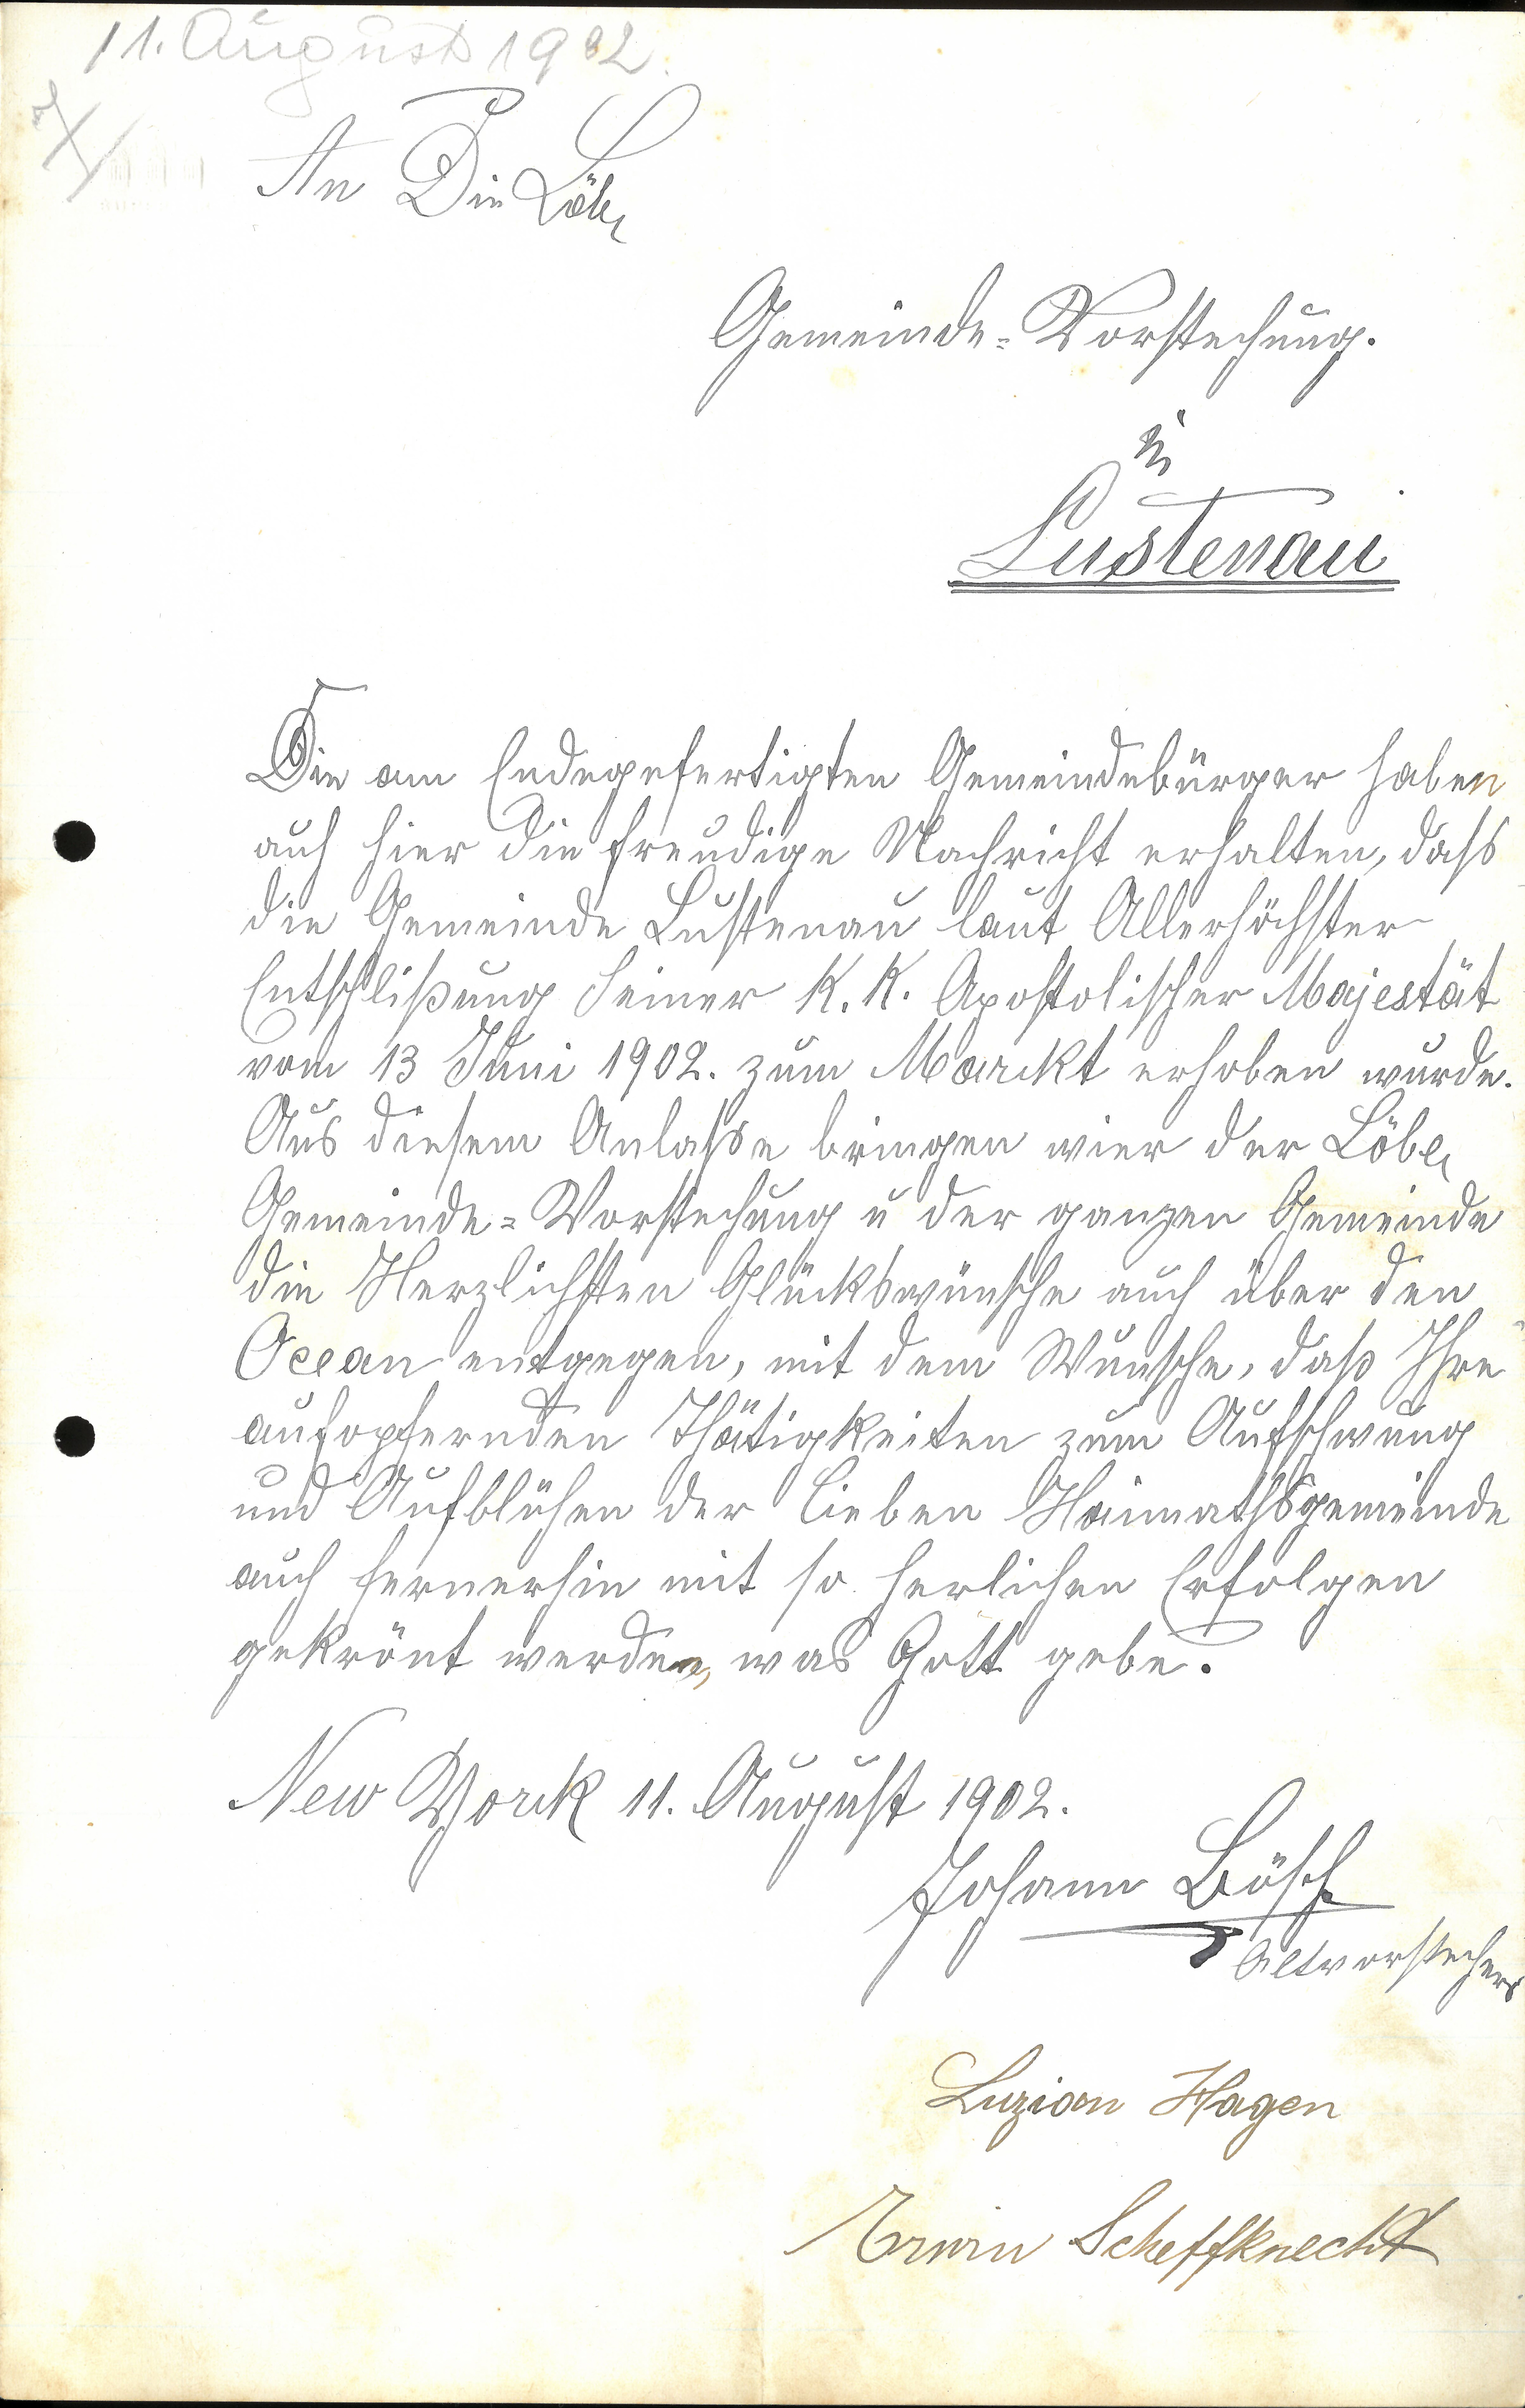 11. August 1902.
An Die Löbl.
Gemeinde=Vorstehung.
in
Lustenau
Die am Endegefertigten Gemeindebürger haben
auch hier die freudige Nachricht erhalten, dass
die Gemeinde Lustenau laut Allerhöchster
Entschlißung Seiner K. K. Apostolischer Majestät
vom 13 Juni 1902. zum Marckt erhoben wurde.
Aus diesem Anlasse bringen wier der Löbl.
Gemeinde=Vorstehung u der ganzen Gemeinde
die Herzlichsten Glückswünsche auch über den
Ocean entgegen, mit dem Wunsche, daß Ihre
aufopfernden Thätigkeiten zum Aufschwung
und Aufblühen der lieben Haimathsgemeinde
auch fernerhin mit so herlichen Erfolgen
gekrönt werden, was Gott gebe.
New Yorck 11. August 1902.
Johann Bösch
Altvorsteher
Luzian Hagen
Erwin Scheffknecht